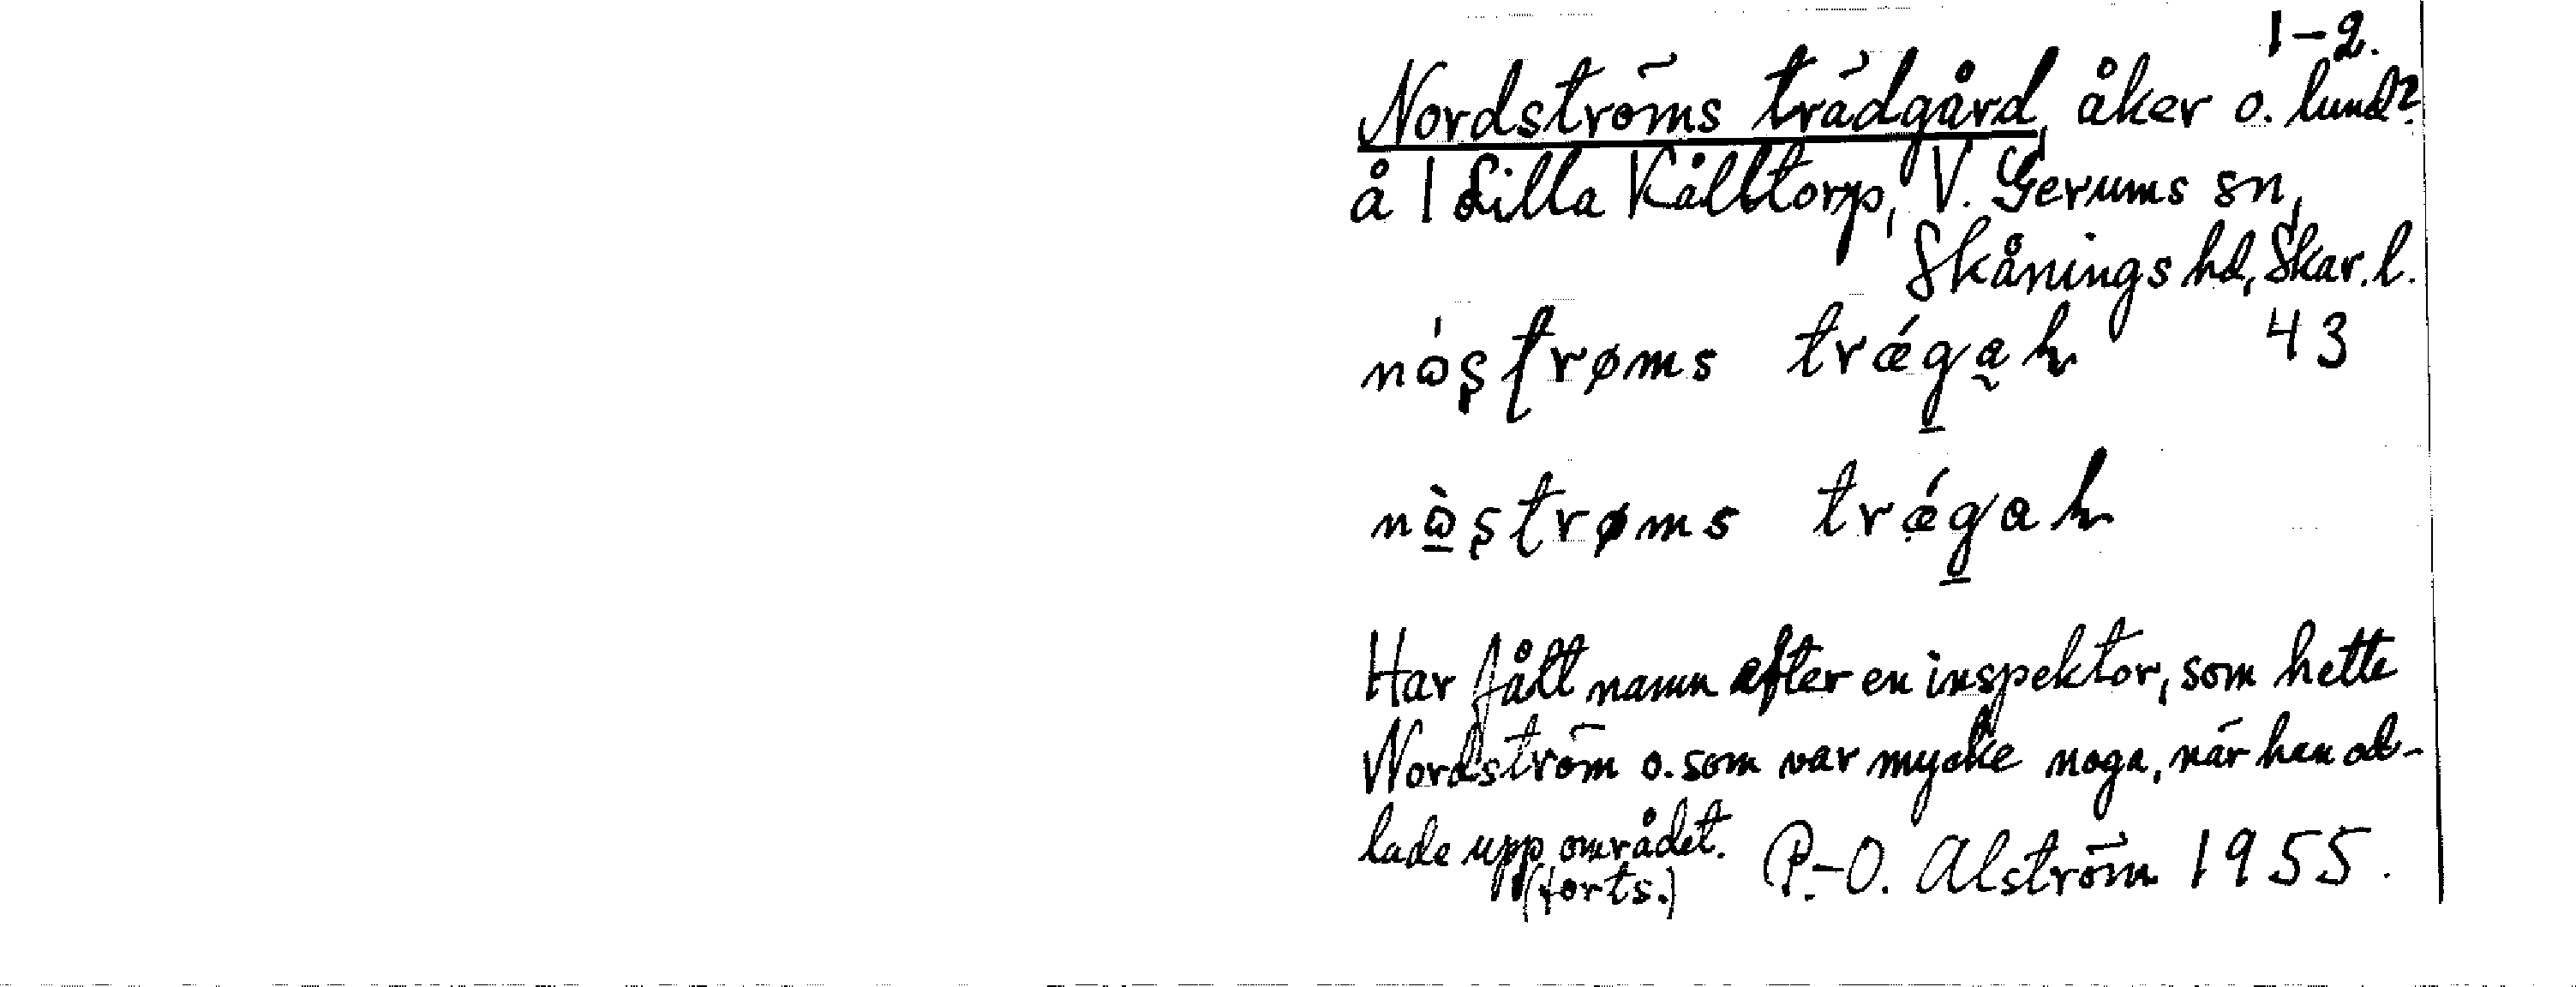 1-2.
Nordströms trädgård, åker o. lund?
å 1 Lilla Kålltorp, V. Gerums sn,
Skånings hd, Skar. l.
43
Har fått namn efter en inspektor, som hette
Nordström o. som var mycke noga, när han od-
lade upp området.
(forts.) P.-O. Alström 1955.